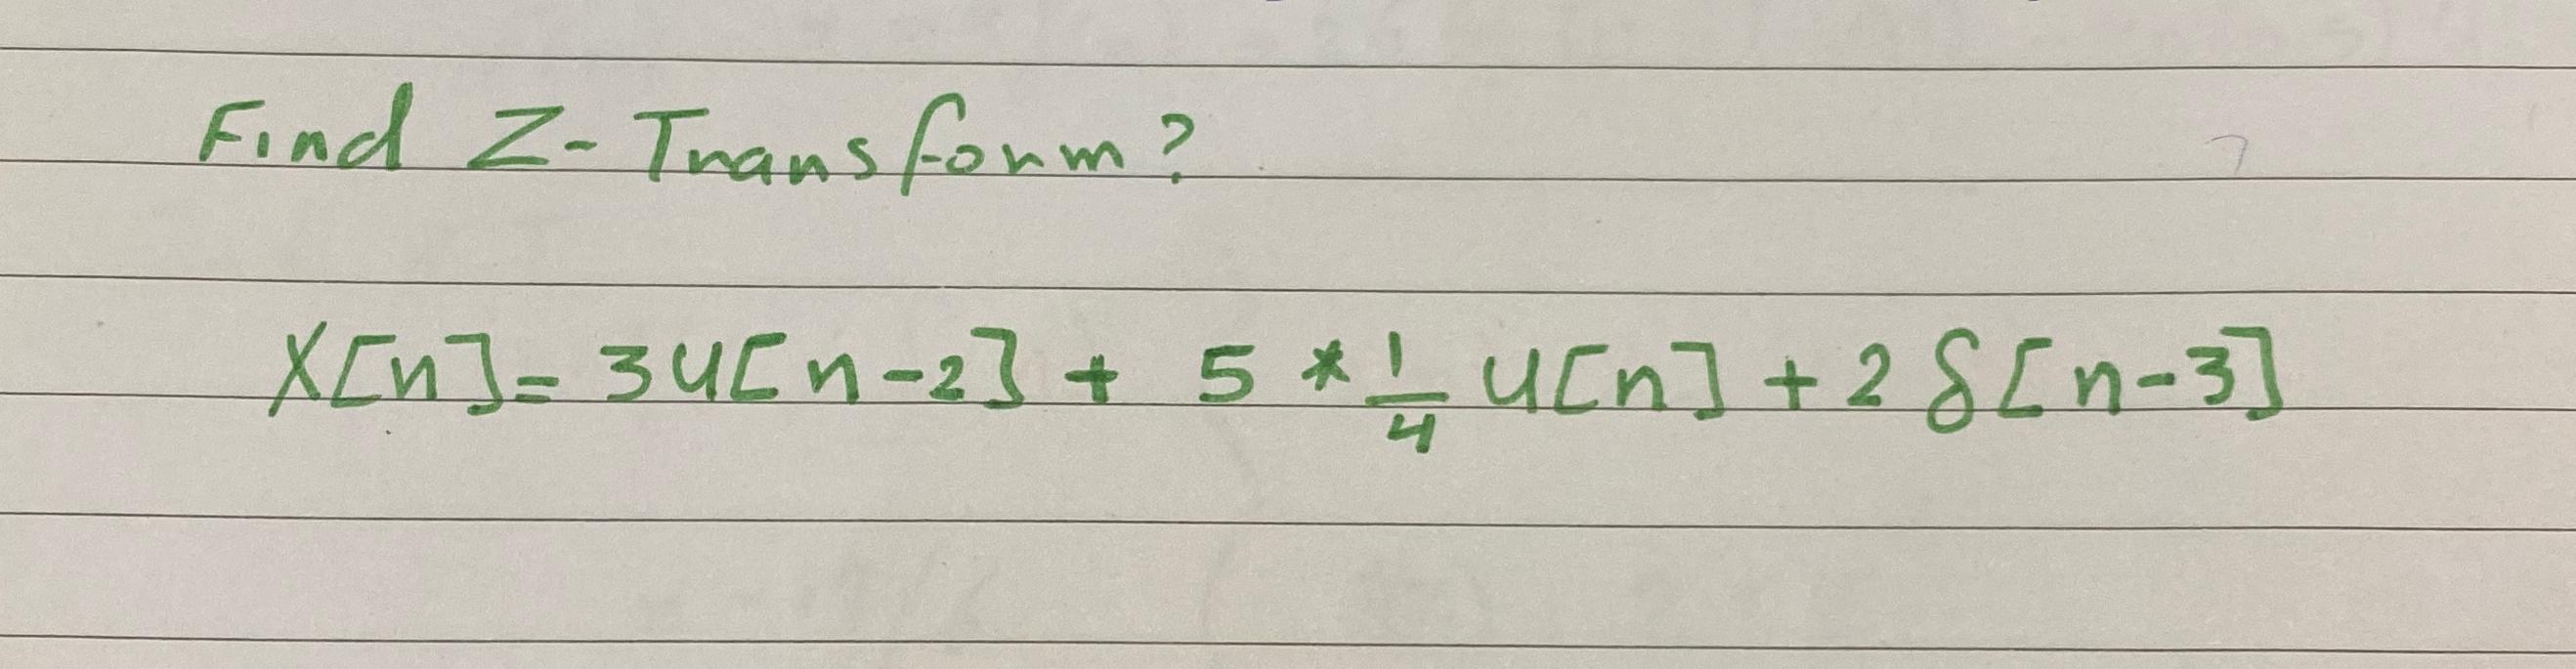 Find Z-Transform?
X[n]= 3u[n-2] + 5 * 1/4 u[n] + 2 δ[n-3]